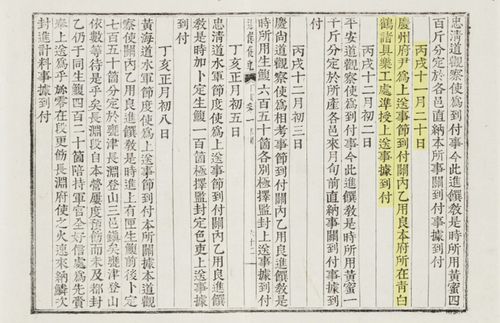 忠清道觀察使爲到付事今此進饌敎是時所用黃蜜四
百斤分定於各邑直納本所事關到付事據到付
丙戌十一月二十日
慶州府尹爲上送事節到付關內乙用良本府所在青白
鶴諸具樂工處準授上送事據到付
丙戌十二月初二日
平安道觀察使爲到付事今此進饌敎是時所用黃蜜一
千斤分定於所產各邑來月旬前直納事關到付事據到
付
丙戌十二月初三日
慶尚道觀察使爲相考事節到付關內乙用良進饌敎是
時所用生鰒六百五十箇各別極擇監封上送事據到付
丁亥正月初五日
忠清道水軍節度使爲上送事節到付關內乙用良進饌
敎是時加卜定生鰒一百箇極擇監封定色吏上送事據
到付
丁亥正月初八日
黃海道水軍節度使爲上送事節到付本所關據本道觀
察使關內乙用良進饌敎是時進上有匣生鰒前後卜定
七百五十箇分定於甕津長淵登山三邑鎭矣甕津登山
依數等待是乎矣長淵段自本營屢度預飭而未及都封
乙仍于同生鰒四百二十箇陪持軍官金好信處爲先賫
來上送爲乎旀零在段更飭長淵府使之火速來納鱗次
封進計料事據到付